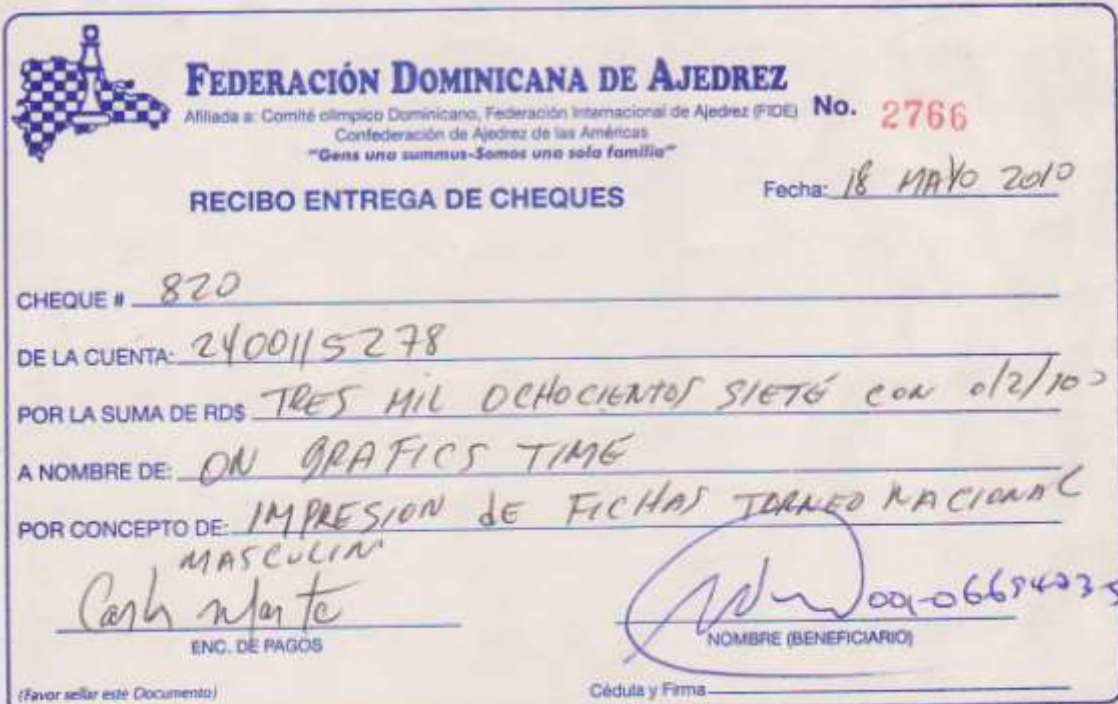 FEDERACIÓN DOMINICANA DE AJEDREZ
Afiliada a: Comité olímpico Dominicano, Federación Internacional de Ajedrez (FIDE) No. 2766
Confederación de Ajedrez de las Américas
"Gens una summus-Somos una sola familia"
RECIBO ENTREGA DE CHEQUES
Fecha: 18 MAYO 2010
CHEQUE # 820
DE LA CUENTA: 2400115278
POR LA SUMA DE RD$ TRES MIL OCHOCIENTOS SIETE CON 0/2/100
A NOMBRE DE: ON GRAFICS TIME
POR CONCEPTO DE: IMPRESION dE FICHAS TORNEO NACIONAL
MASCULIN
ENC. DE PAGOS
NOMBRE (BENEFICIARIO)
(Favor sellar este Documento)
Cédula y Firma